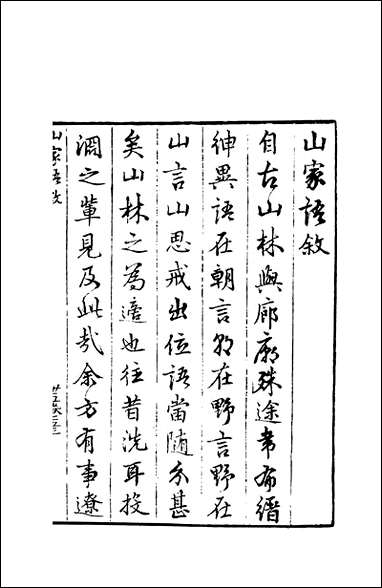 山家語敘
自古山林與廊廟殊途韋布縉
紳異語在朝言朝在野言野在
山言山思戒出位語當隨分甚
矣山林之為適也往昔洗耳投
淵之輩見及此哉余方有事遼
山家語敘